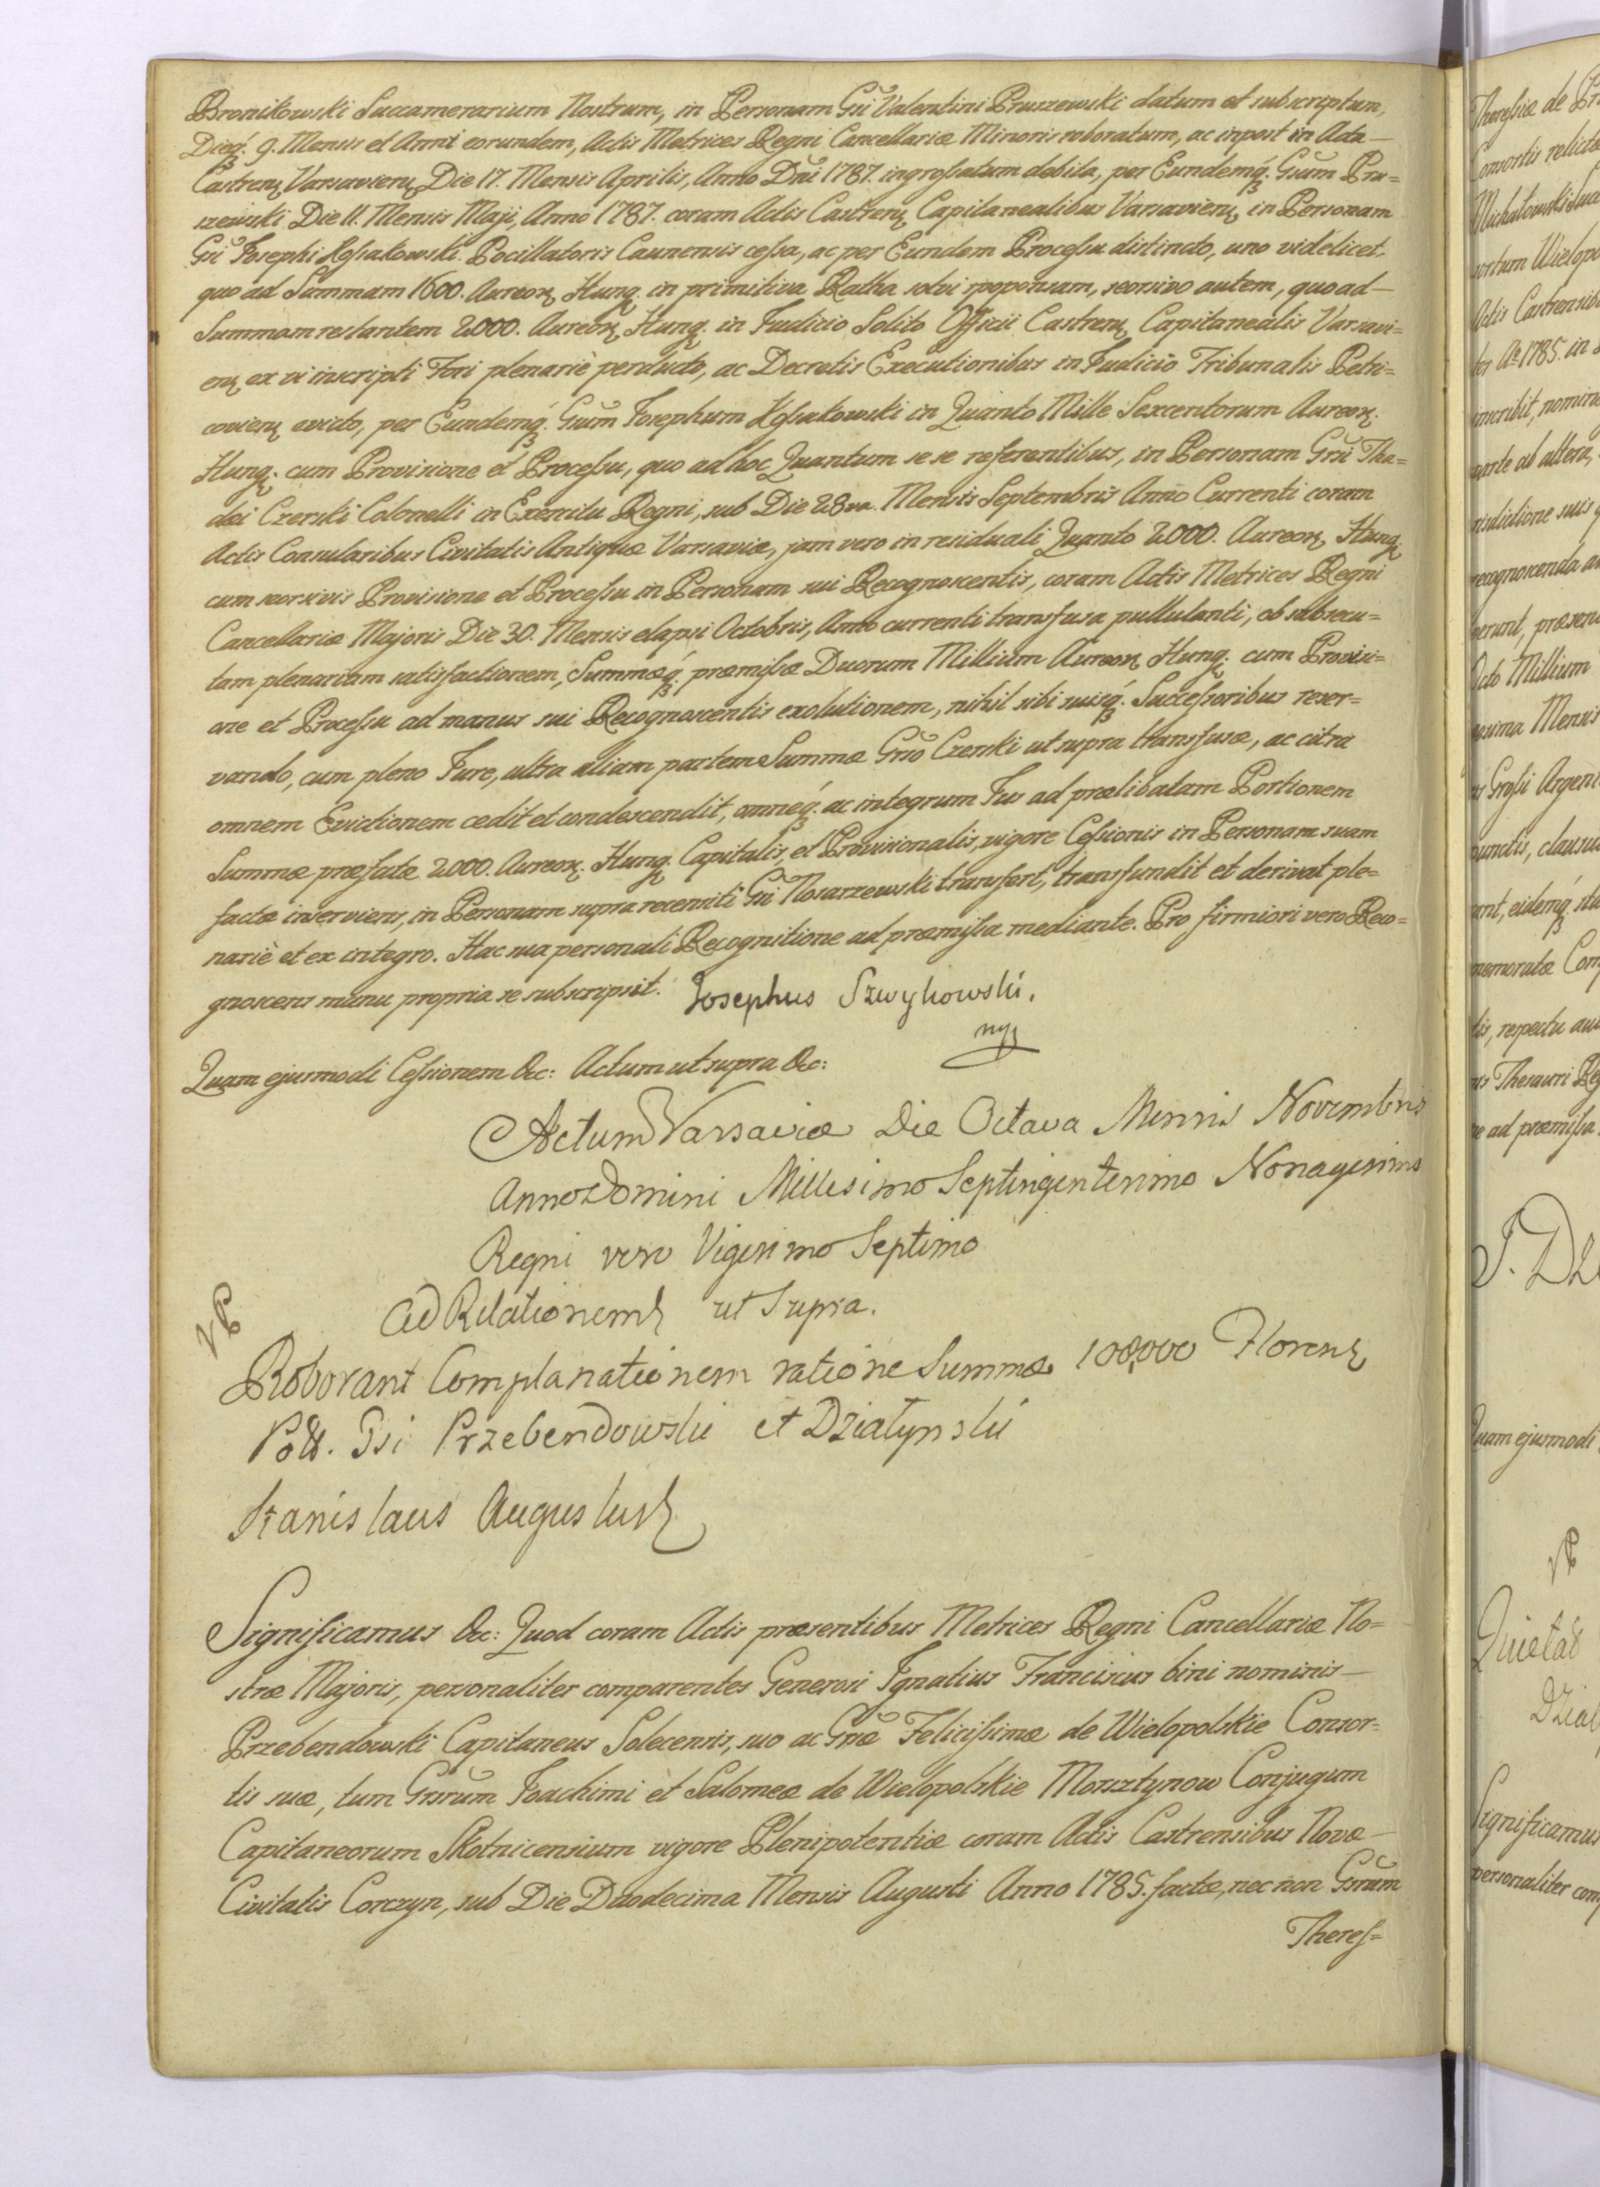 Bronikowski Succamerarium Nostrum, in Personam Gsi Valentini Pruszewski datum et subscriptum,
Dieq́. 9. Mensis et Anni eorundem, Actis Metrices Regni Cancellariæ Minoris roboratum, ac inpost in Acta
Castren. Varsavien. Die 17. Mensis Aprilis, Anno Dni 1787. ingrossatum debita, per Eundemq́. Gsum Pru=
szewski Die 11. Mensis Maji, Anno 1787. coram Actis Castren. Capitanealibus Varsavien. in Personam
Gsi Josephi Kossakowski Pocillatoris Caunensis cessa, ac per Eundem Processu distincto, uno videlicet
quo ad Summam 1600. Aureor. Hung. in primitiva Ratha solvi sposponsam, seorsivo autem, quo ad
Summam restantem 2000. Aureor. Hung. in Judicio Solito Officii Castren. Capitanealis Varsavi=
en. ex vi inscripti Fori plenariè perducto, ac Decretis Executionibus in Judicio Tribunalis Petri=
covien. evicto, per Eundemq́. Gsum Josephum Kossakowski in Quanto Mille Sexcentorum Aureor.
Hung. cum Provisione et Processu, quo ad hoc Quantum se se referentibus, in Personam Gsi Tha=
dei Czerski Colonelli in Exercitu Regni, sub Die 28va. Mensis Septembris Anno Currenti coram
Actis Consularibus Civitatis Antiquæ Varsaviæ, jam vero in residuali Quanto 2000. Aureor. Hung.
cum seorsivis Provisione et Processu in Personam sui Recognoscentis, coram Actis Metrices Regni
Cancellariæ Majoris Die 30. Mensis elapsi Octobris, Anno currenti transfusa pullulanti, ob subsecu=
tam plenariam satisfactionem, Summæq́. præmissæ Duorum Millium Aureor. Hung. cum Provisi=
one et Processu ad manus sui Recognoscentis exolutionem, nihil sibi suisq́. Successoribus reser=
vando, cum pleno Jure, ultra alliam partem Summæ Gso Czerski ut supra transfusæ, ac citra
omnem Evictionem cedit et condescendit, omneq́. ac integrum Jus ad prælibatam Portionem
Summæ præfatæ 2000. Aureor. Hung. Capitalis, et Provisionalis, vigore Cessionis in Personam suam
factæ inserviens, in Personam supra recensiti Gsi Nosarzewski transfert, transfundit et derivat ple=
nariè et ex integro. Hac sua personali Recognitione ad præmissa mediante. Pro firmiori vero Reco=
gnoscens manu propria se subscripsit. Josephus Szwykowski.
mp
Quam ejusmodi Cessionem &c: Actum ut supra &c:
Actum Varsaviæ Die Octava Mensis Novembris
Anno Domini Millesimo Septingentesimo Nonagesimo
Regni vero Vigesimo Septimo
Ad Relationem ut Supra.
Roborant Complanationem ratione Summæ 108,000 Floren.
Poll. Gsi Przebendowski et Działyński
Stanislaus Augustus
Significamus &c: Quod coram Actis præsentibus Metrices Regni Cancellariæ No=
stræ Majoris, personaliter comparentes Generosi Ignatius Franciscus bini nominis
Przebendowski Capitaneus Solecensis, suo ac Gsæ Felicissimæ de Wielopolskie Consor=
tis suæ, tum Gsrum Joachimi et Salomeæ de Wielopolskie Morsztynow Conjugum
Capitaneorum Skotnicensium vigore Plenipotentiæ coram Actis Castrensibus Novæ
Civitatis Corczyn, sub Die Duodecima Mensis Augusti Anno 1785. factæ, nec non Gsrum
Theres=